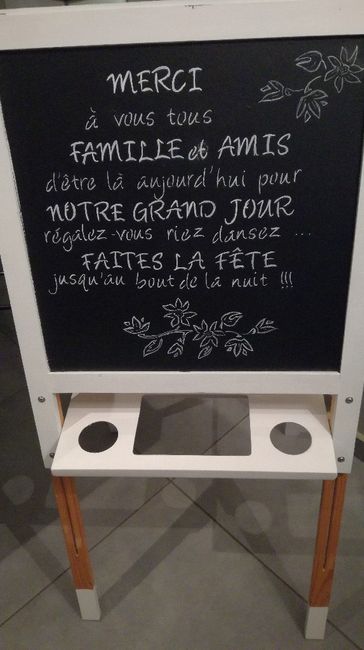 MERCI
à vous tous
FAMILLE et AMIS
d'être là aujourd'hui pour
NOTRE GRAND JOUR
régalez-vous riez dansez ...
FAITES LA FÊTE
jusqu'au bout de la nuit !!!